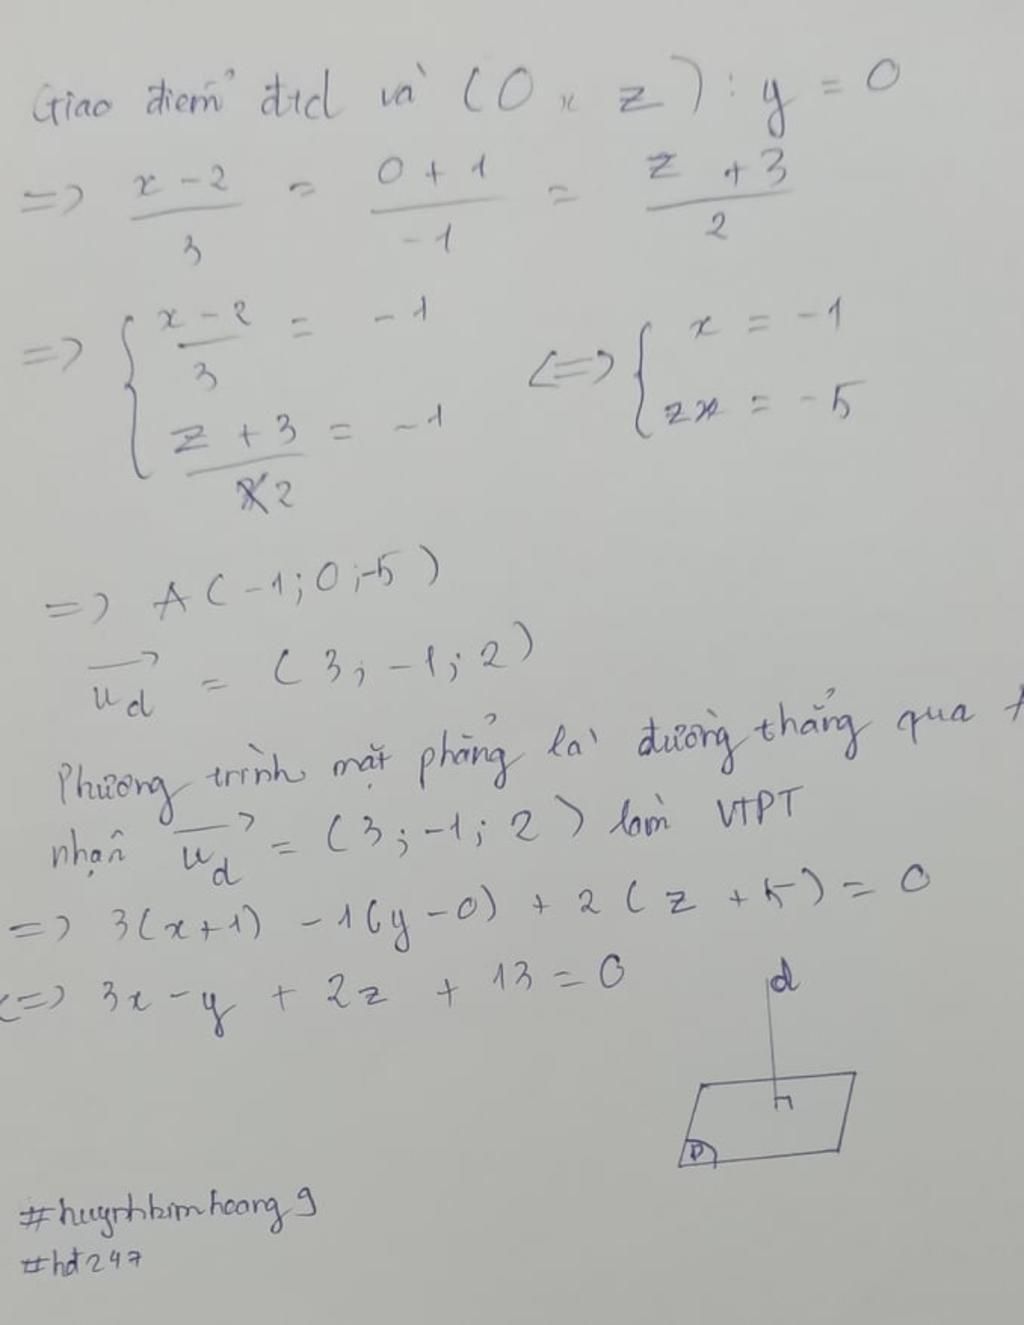 Giao điểm đtd và (Oxz): y = 0
=> x - 2 / 3 = 0 + 1 / -1 = z + 3 / 2
=> { x - 2 / 3 = -1 <=> { x = -1
z + 3 / 2 = -1 z = -5
=> A(-1; 0; -5)
u_d = (3; -1; 2)
Phương trình mặt phẳng là đường thẳng qua A
nhận u_d = (3; -1; 2) làm VTPT
=> 3(x+1) - 1(y-0) + 2(z+5) = 0
<=> 3x - y + 2z + 13 = 0
d
P
#huynhkimhoang9
#hđ247